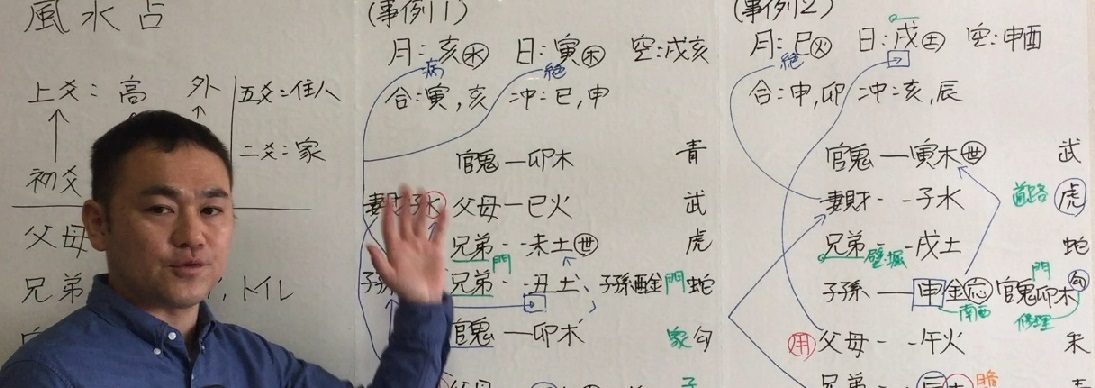 風水占
上爻：高 外 五爻＝住人
二爻＝家
初爻
父母
兄弟 トイレ
(事例1)
月：亥(水) 日：寅(木) 空：戌亥
病 絶
合：寅,亥 冲：巳,申
官鬼―卯木 青
妻財子水 父母―巳火 武
兄弟--未土(世) 虎
門
子孫 兄弟--丑土 子孫酉金 門 蛇
官鬼―卯木 家 勾
子
(事例2)
月：巳(火) 日：戌(土) 空：申酉
絶
合：申,卯 冲：亥,辰
官鬼―寅木(世) 武
妻財--子水 道路 虎
兄弟--戌土 蛇
壁
子孫―申金(応) 官鬼卯木 勾
門
南西 修理
用 父母--午火 朱
兄弟 暗